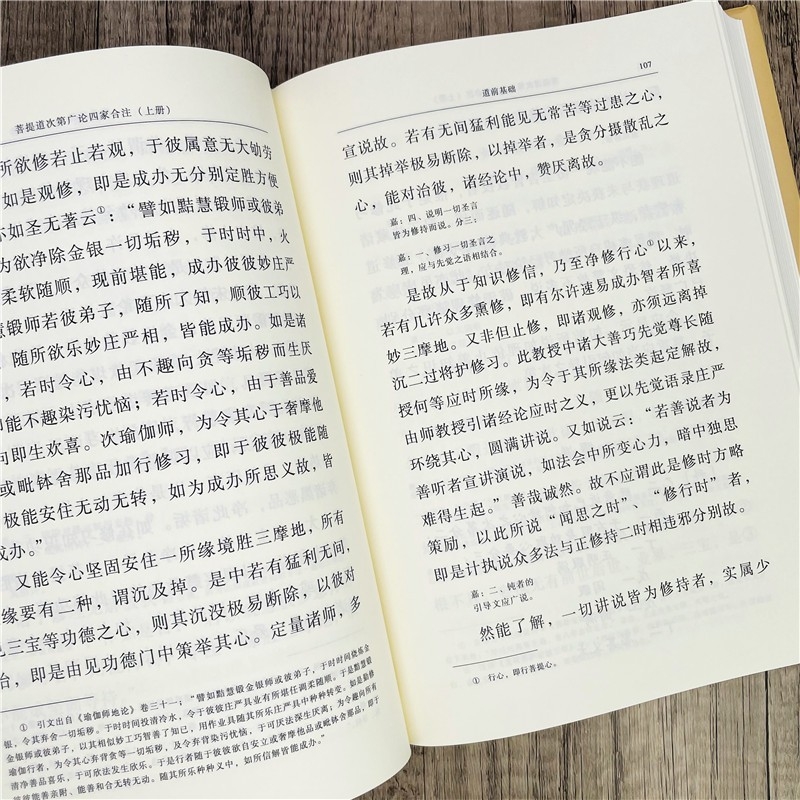 菩提道次第广论四家合注（上册）
所欲修若止若观，于彼属意无大劬劳
如是观修，即是成办无分别定胜方便
亦如圣无著云①：“譬如黠慧锻师或彼弟
为欲净除金银一切垢秽，于时时中，火
柔软随顺，现前堪能，成办彼彼妙庄严
慧锻师若彼弟子，随所了知，顺彼工巧以
，随所欲乐妙庄严相，皆能成办。如是诸
，若时令心，由不趣向贪等垢秽而生厌
即能不趣染污忧恼；若时令心，由于善品爱
即生欢喜。次瑜伽师，为令其心于奢摩他
或毗钵舍那品加行修习，即于彼彼极能随
极能安住无动无转，如为成办所思义故，皆
成办。”
又能令心坚固安住一所缘境胜三摩地，所有
缘要有二种，谓沉及掉。是中若有猛利无间，
见三宝等功德之心，则其沉没极易断除，以彼对
治，即是由见功德门中策举其心。定量诸师，多
① 引文出自《瑜伽师地论》卷三十一：“譬如黠慧锻金银师或彼弟子，于时时间烧炼金
银，令其弃舍一切垢秽。于时时间投清冷水，令于彼彼庄严具业有所堪任调柔随顺。于是黠慧
金银师或彼弟子，以其相似妙工巧智善了知已，用作业具随其所乐庄严具中种种转变。如是勤修
瑜伽行者，为令其心弃背贪等一切垢秽，及令弃背染污忧恼，于可厌法深生厌离；为令趣向所有
清净善品喜乐，于可欣法发生欣乐。于是行者随于彼彼欲自安立或奢摩他品或毗钵舍那品，即于
彼彼能善亲附、能善和合无转无动。随其所乐种种义中，如所信解皆能成办。”
道前基础
107
宣说故。若有无间猛利能见无常苦等过患之心，
则其掉举极易断除，以掉举者，是贪分摄散乱之
心，能对治彼，诸经论中，赞厌离故。
嘉：四、说明一切圣言
皆为修持而说。分三：
嘉：一、修习一切圣言之
理，应与先觉之语相结合。
是故从于知识修信，乃至净修行心①以来，
若有几许众多熏修，即有尔许速易成办智者所喜
妙三摩地。又非但止修，即诸观修，亦须远离掉
沉二过将护修习。此教授中诸大善巧先觉尊长随
授何等应时所缘，为令于其所缘法类起定解故，
由师教授引诸经论应时之义，更以先觉语录庄严
环绕其心，圆满讲说。又如说云：“若善说者为
善听者宣讲演说，如法会中所变心力，暗中独思
难得生起。”善哉诚然。故不应谓此是修时方略
策励，以此所说“闻思之时”、“修行时”者，
即是计执说众多法与正修持二时相违邪分别故。
嘉：二、钝者的
引导文应广说。
然能了解，一切讲说皆为修持者，实属少
① 行心，即行菩提心。